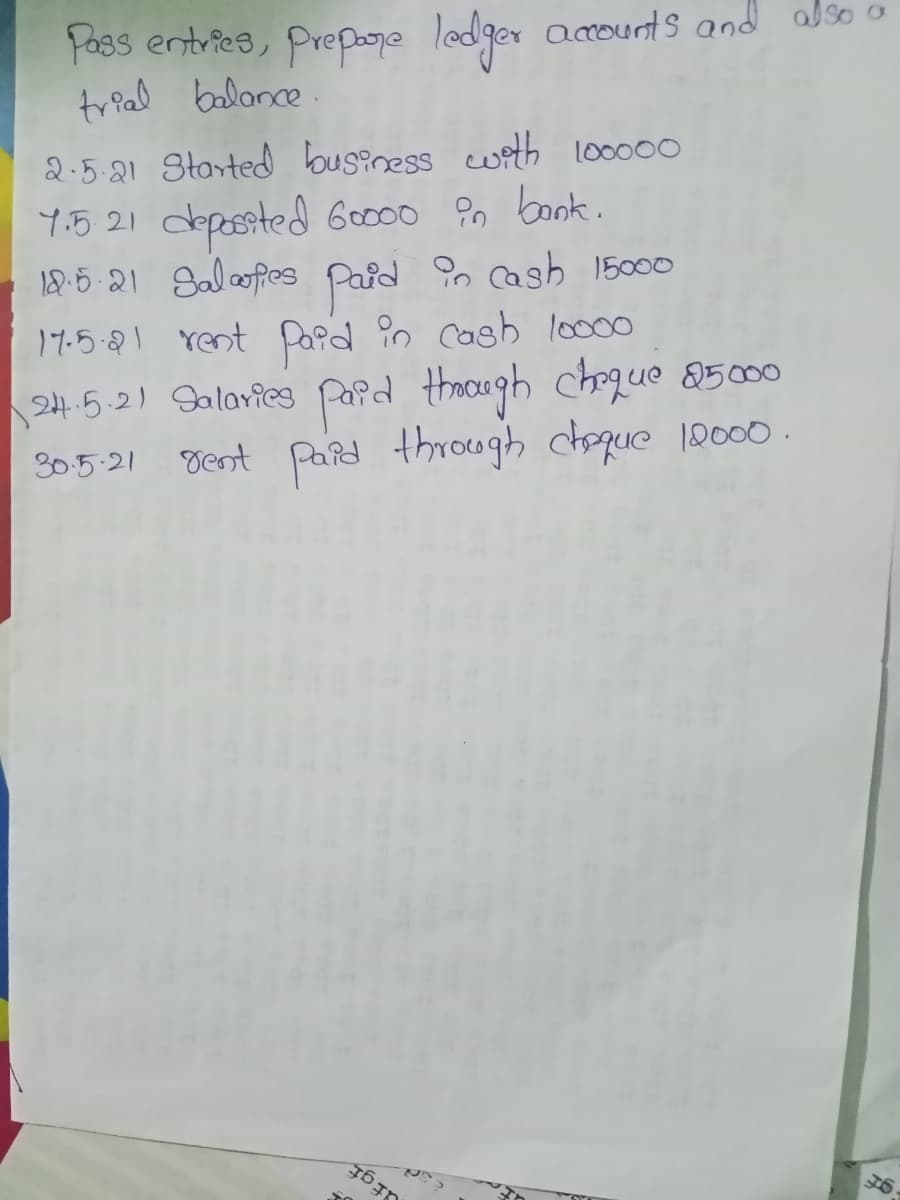 Pass entries, Prepare ledger accounts and also a
trial balance.
2.5.21 Started business with 100000
7.5.21 deposited 60000 in bank.
12.5.21 Salaries paid in cash 15000
17.5.21 rent paid in cash 10000
24.5.21 Salaries paid through cheque 25000
30.5.21 rent paid through cheque 12000.